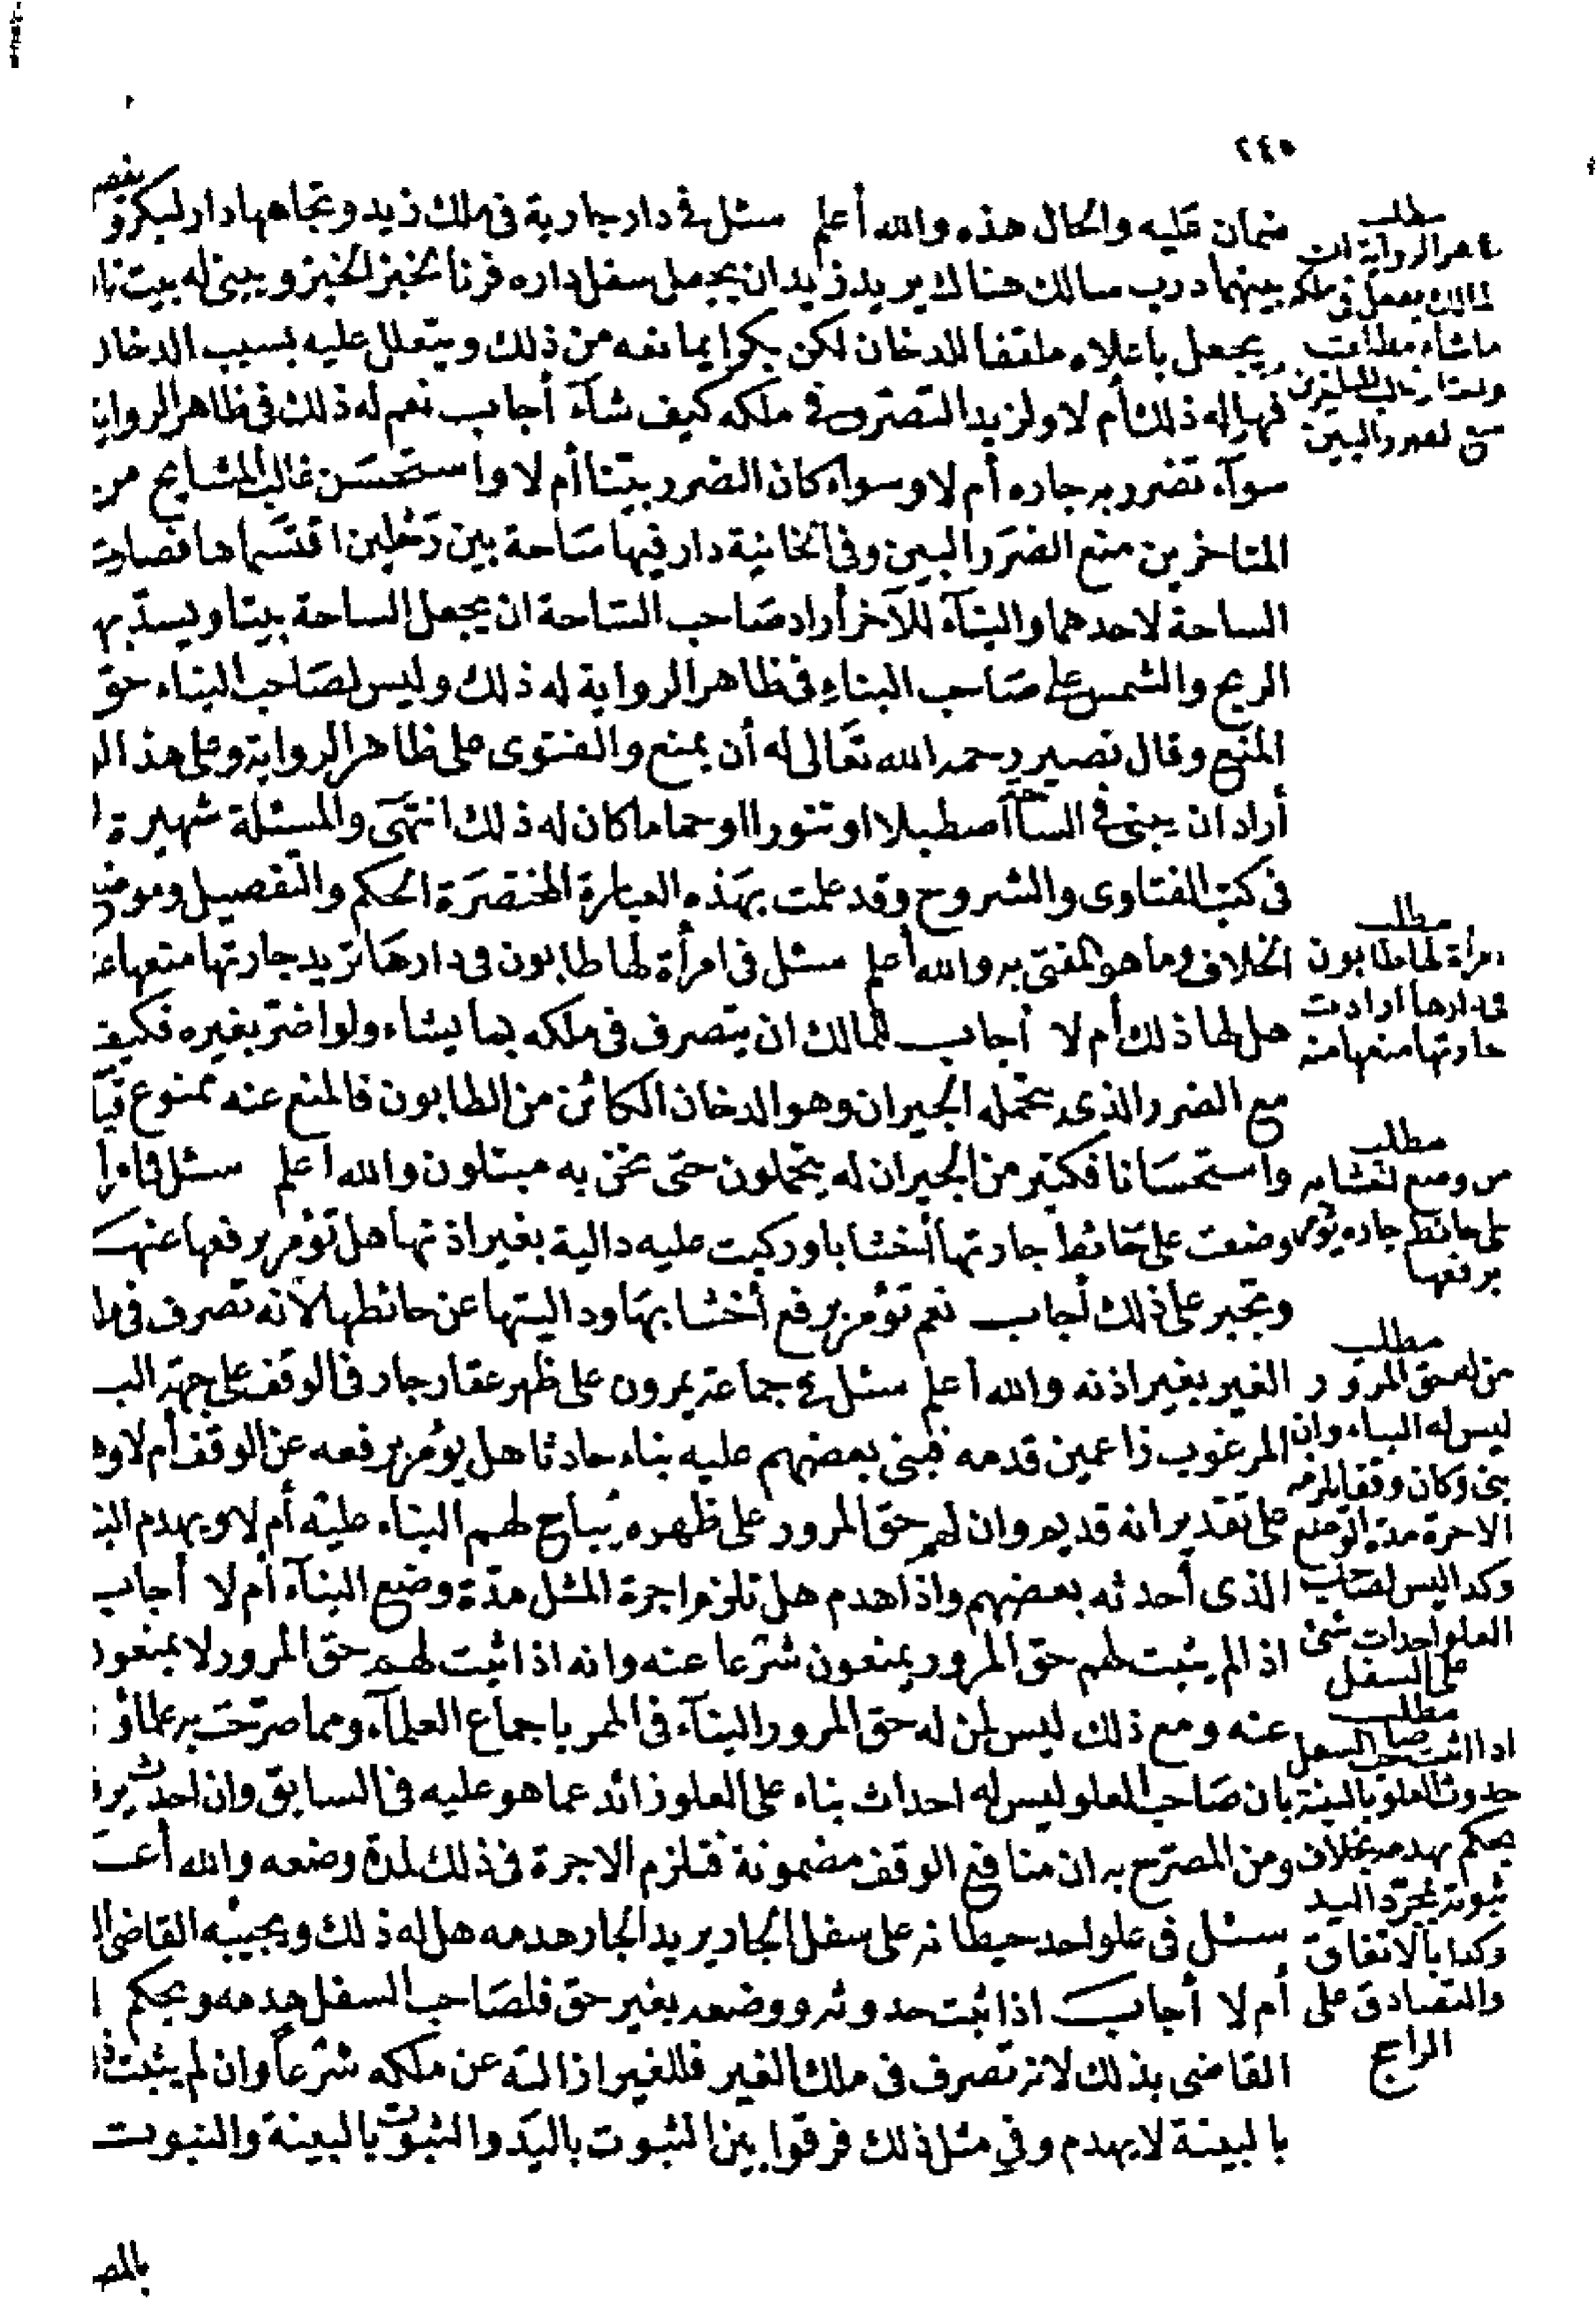 ٢٤٥
ضمان عليه والحال هذه والله أعلم سئل في دار جارية في ملك زيد وتجاهها دار لبكر
بينهما درب سالك هناك يريد زيد ان يجعل سفل داره فرنا لخبز الخبز ويبنى له بيت
ويجعل باعلاه ملقفا للدخان لكن بكرا يمانعه من ذلك ويتعلل عليه بسبب الدخان
فهل له ذلك أم لا ولزيد التصرف في ملكه كيف شآء أجاب نعم له ذلك في ظاهر الرواية
سوآء تضرر به جاره أم لا وسواء كان الضرر بيّنا أم لا واستحسن غالب المشايخ من
المتاخرين منع الضرر البين وفى الخانية دار فيها ساحة بين رجلين اقتسماها فصارت
الساحة لاحدهما والبنآء للآخر أراد صاحب السّاحة ان يجعل الساحة بيتا ويسدّ بها
الريح والشمس على صاحب البناء في ظاهر الرواية له ذلك وليس لصاحب البناء حق
المنع وقال نصير رحمه الله تعالى له أن يمنع والفتوى على ظاهر الرواية وعلى هذا
أراد ان يبنى في الساحة اصطبلا او تنورا او حماما كان له ذلك انتهى والمسئلة شهيرة
في كتب الفتاوى والشروح وقد علمت بهذه العبارة المختصرة الحكم والتفصيل وموضع
الخلاف وما هو المفتى به والله أعلم سئل في امرأة لها طابون في دارها تريد جارتها منعها
هل لها ذلك أم لا أجاب للمالك ان يتصرف في ملكه بما يشاء ولو اضرّ بغيره فكيف
مع الضرر الذى يتحمله الجيران وهو الدخان الكائن من الطابون فالمنع عنه ممنوع قيا
واستحسانا فكثير من الجيران له يتحملون حتى نحن به مبتلون والله أعلم سئل في
وضعت على حائط جارتها أخشابا وركبت عليه دالية بغير اذنها هل تؤمر برفعها عنه
وتجبر على ذلك أجاب نعم تؤمر برفع أخشابها وداليتها عن حائطها لأنه تصرف في
الغير بغير اذنه والله أعلم سئل في جماعة يمرون على ظهر عقار جار في الوقف على جهة البر
المرغوب زاعمين قدمه فبنى بعضهم عليه بناء حادثا هل يؤمر برفعه عن الوقف أم لا
على تقدير انه قديم وان لهم حق المرور على ظهره يباح لهم البناء عليه أم لا ويهدم
الذى أحدثه بعضهم واذا هدم هل تلزم اجرة المثل مدّة وضع البنآء أم لا أجاب
اذا لم يثبت لهم حق المرور يمنعون شرعا عنه وانه اذا ثبت لهم حق المرور لا يمنعون
عنه ومع ذلك ليس لمن له حق المرور البنآء في الممر باجماع العلمآء ومما صرّحت به علماؤ
بان صاحب العلو ليس له احداث بناء على العلو زائد عما هو عليه في السابق وان احدث
ومن المصرّح به ان منافع الوقف مضمونة فتلزم الاجرة في ذلك لمدة وضعه والله أعـ
سئل في علو احد حيطانه على سفل الجار يريد الجار هدمه هل له ذلك ويجيبه القاضى
أم لا أجاب اذا ثبت حدوثه ووضعه بغير حق فلصاحب السفل هدمه ويحكم
القاضى بذلك لانه تصرف في ملك الغير فللغير ازالته عن ملكه شرعا وان لم يثبت
بالبينة لا يهدم وفى مثل ذلك فرقوا بين الثبوت باليد والثبوت بالبينة والثبوت
بالمصـ
مطلب
ظاهر الرواية ان
المالك يفعل في ملكه
ما شاء مطلقا
منع الضرر البين
مطلب
امرأة لها طابون
في دارها ارادت
جارتها منعها منه
مطلب
من وضع اخشابه
على حائط جاره يؤمر
برفعها
مطلب
من له حق المرور
ليس له البناء وان
بنى وكان وقفا يلزمه
الاجرة مدة الوضع
وكذا ليس لصاحب
العلو احداث شئ
على السفل
مطلب
اذا اثبت صاحب السفل
حدوث العلو بالبينة
يحكم بهدمه بخلاف
ثبوته بمجرّد اليد
وكذا بالاتفاق
والتصادق على
الراجح